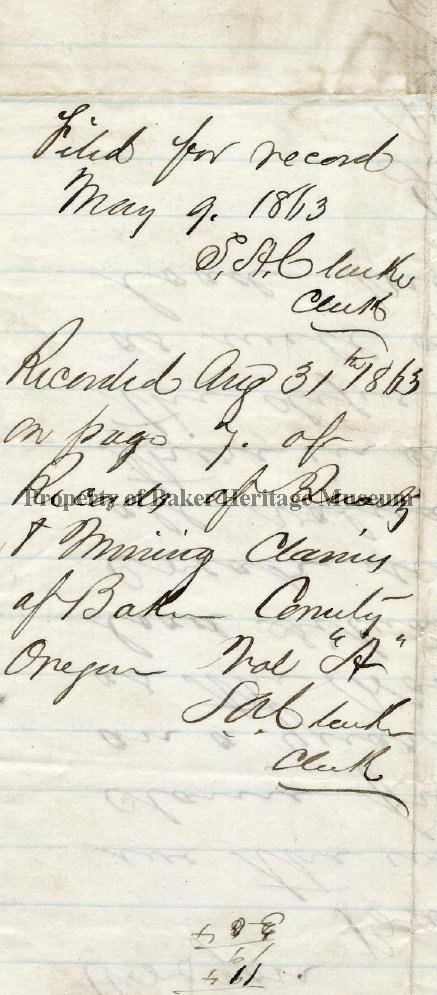 Filed for record
May 9. 1863
S. A. Clarke
Clerk
Recorded Aug 31st 1863
on page 7. of
Records of
Property of Baker Heritage Museum
& Mining Claims
of Baker County
Oregon Vol "A"
S. A. Clarke
Clerk